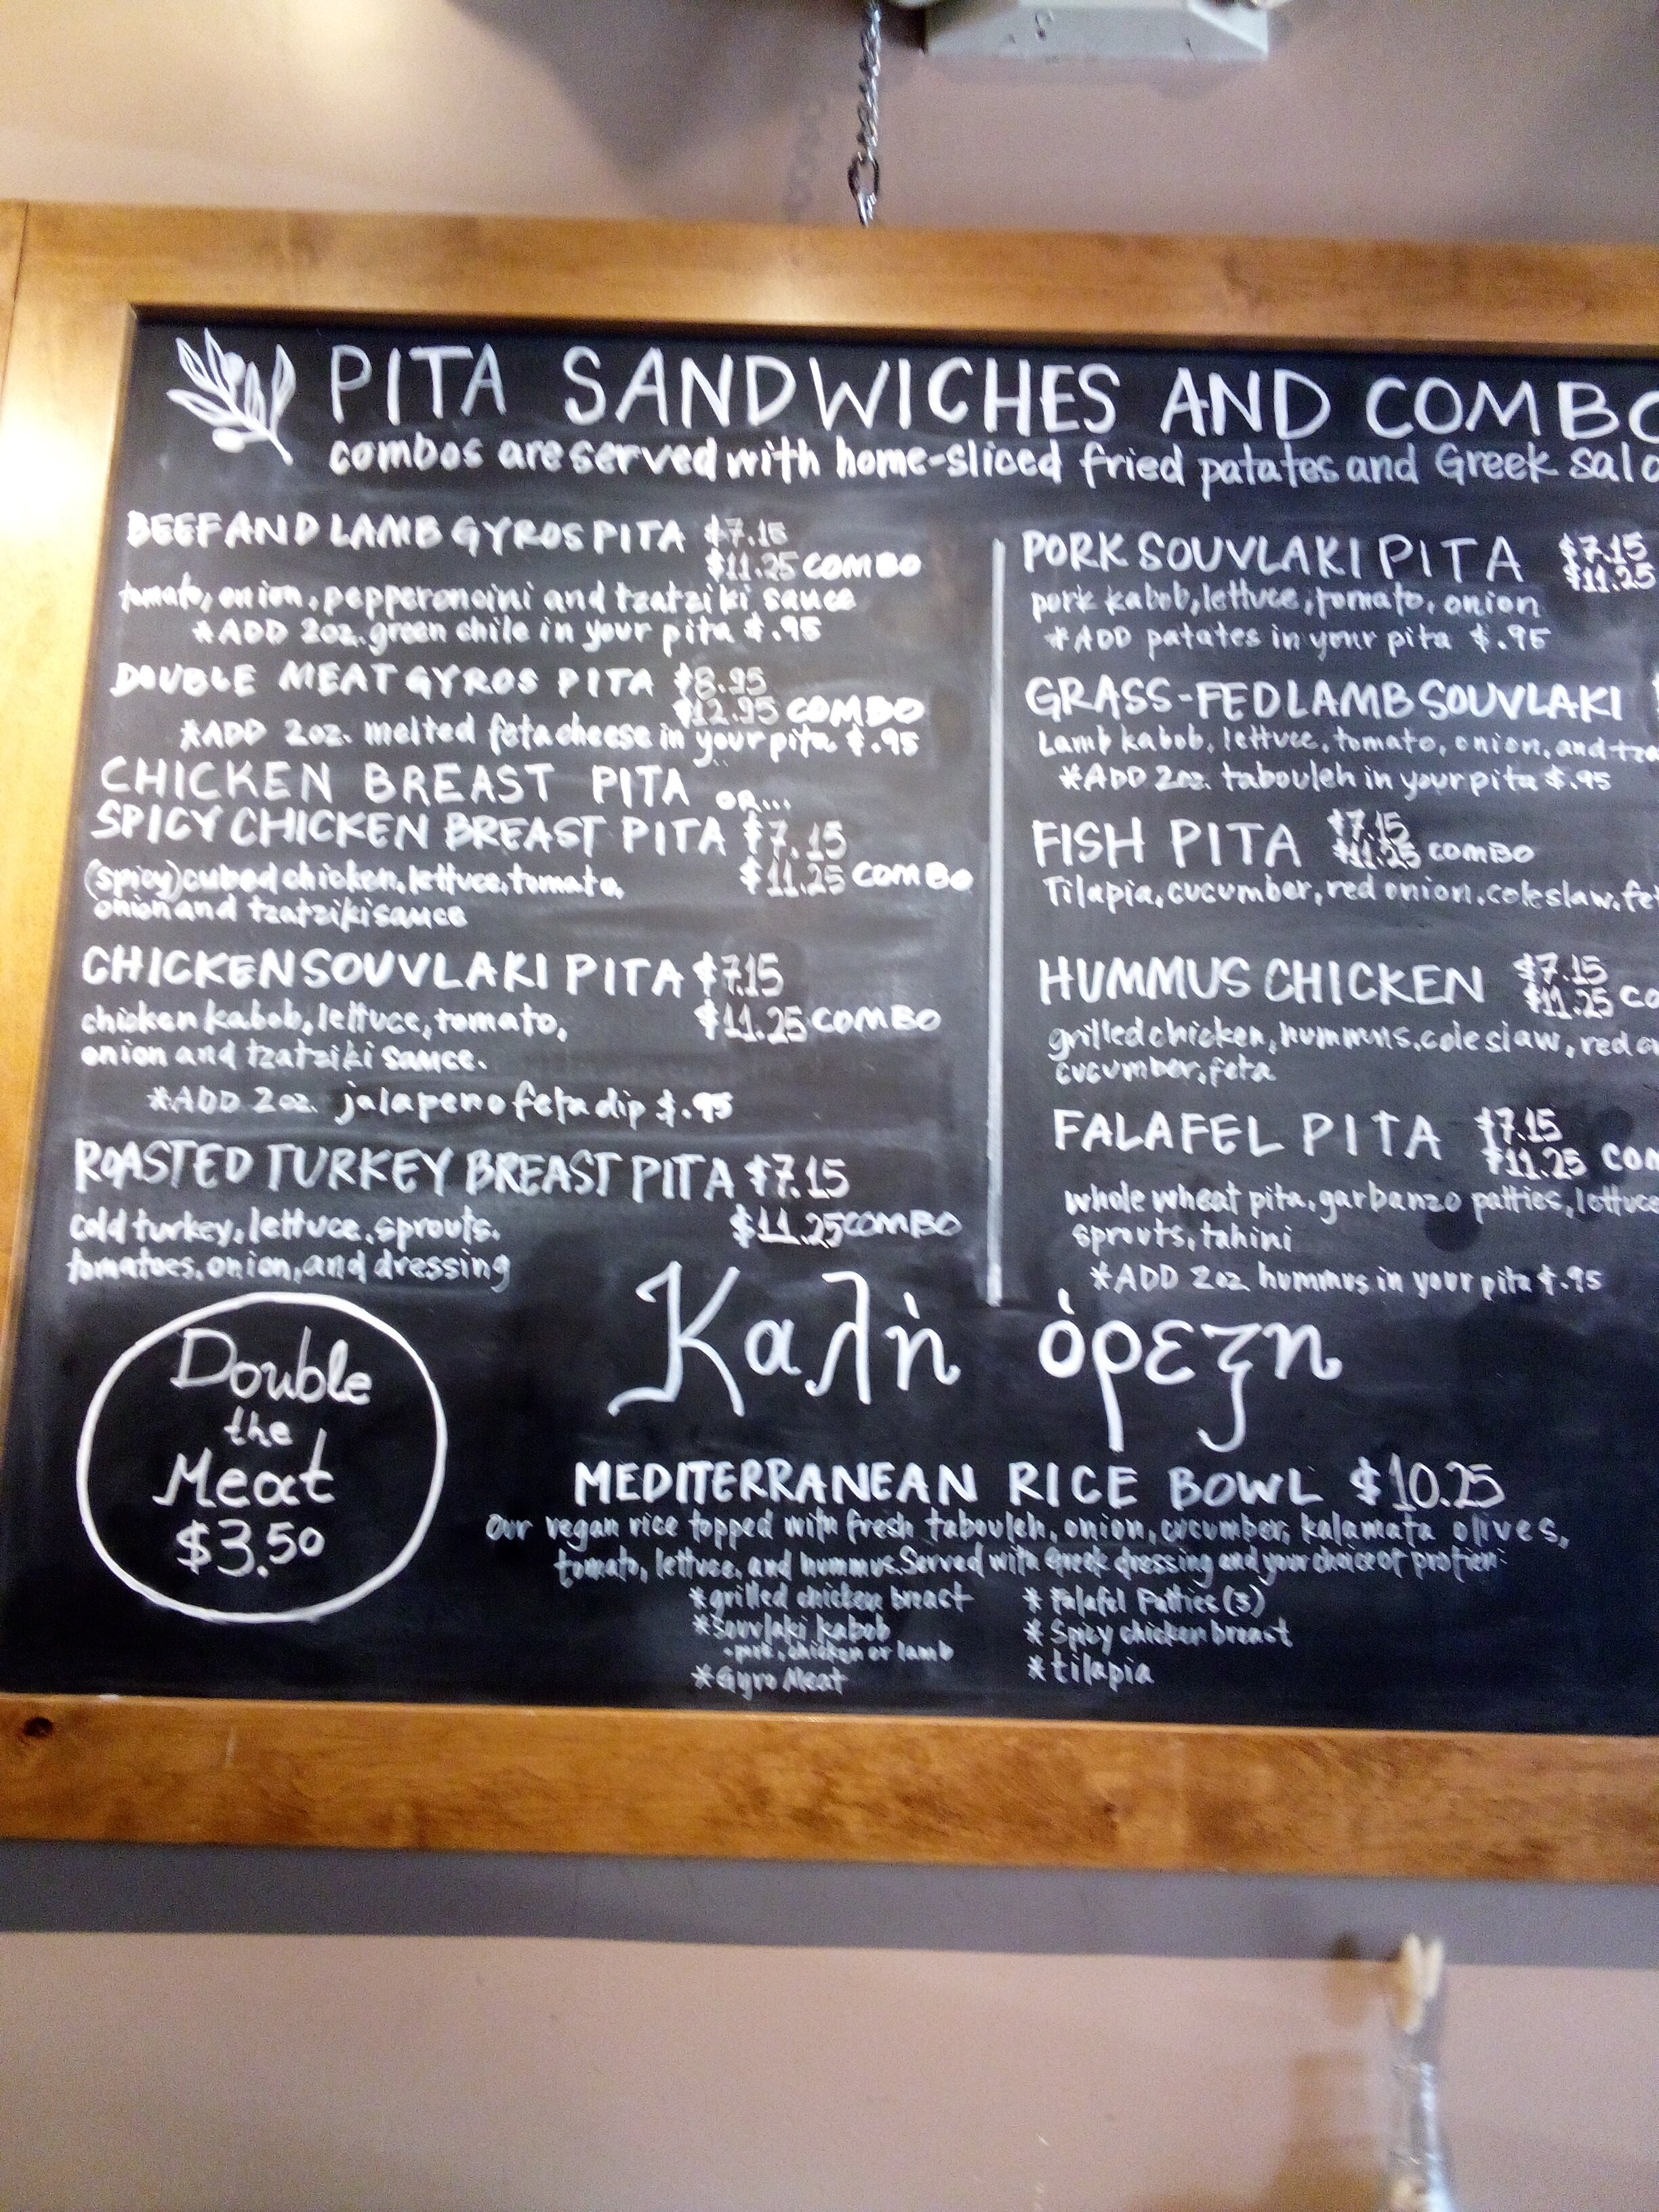 PITA SANDWICHES AND COMBO
combos are served with home-sliced fried patates and Greek sala
BEEF AND LAMB GYROS PITA $7.15
$11.25 COMBO
tomato, onion, pepperoncini and tzatziki sauce
*ADD 2oz. green chile in your pita $.95
DOUBLE MEAT GYROS PITA $8.95
$12.95 COMBO
*ADD 2oz. melted feta cheese in your pita $.95
CHICKEN BREAST PITA OR...
SPICY CHICKEN BREAST PITA $7.15
$11.25 COMBO
(spicy) cubed chicken, lettuce, tomato,
onion and tzatziki sauce
CHICKEN SOUVLAKI PITA $7.15
$11.25 COMBO
chicken kabob, lettuce, tomato,
onion and tzatziki sauce.
*ADD 2oz. jalapeno feta dip $.95
ROASTED TURKEY BREAST PITA $7.15
$11.25 COMBO
cold turkey, lettuce, sprouts,
tomatoes, onion, and dressing
PORK SOUVLAKI PITA $7.15
$11.25
pork kabob, lettuce, tomato, onion
*ADD patates in your pita $.95
GRASS-FED LAMB SOUVLAKI
Lamb kabob, lettuce, tomato, onion, and tza
*ADD 2oz. tabouleh in your pita $.95
FISH PITA $7.15
$11.25 COMBO
Tilapia, cucumber, red onion, coleslaw, fe
HUMMUS CHICKEN $7.15
$11.25 CO
grilled chicken, hummus, cole slaw, red o
cucumber, feta
FALAFEL PITA $7.15
$11.25 COM
whole wheat pita, garbanzo patties, lettuce
sprouts, tahini
*ADD 2oz hummus in your pita $.95
Καλὴ ὁρεξη
Double
the
Meat
$3.50
MEDITERRANEAN RICE BOWL $10.25
our vegan rice topped with fresh tabouleh, onion, cucumber, kalamata olives,
tomato, lettuce, and hummus. Served with Greek dressing and your choice of protien:
*grilled chicken breast
*Souvlaki kabob
-pork, chicken or lamb
*Gyro Meat
*Falafel Patties (3)
*Spicy chicken breast
*tilapia